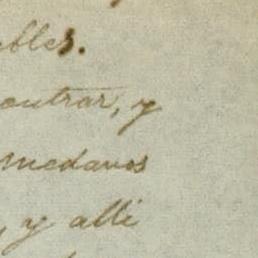 ables.
contrar, y
medanos
, y alli